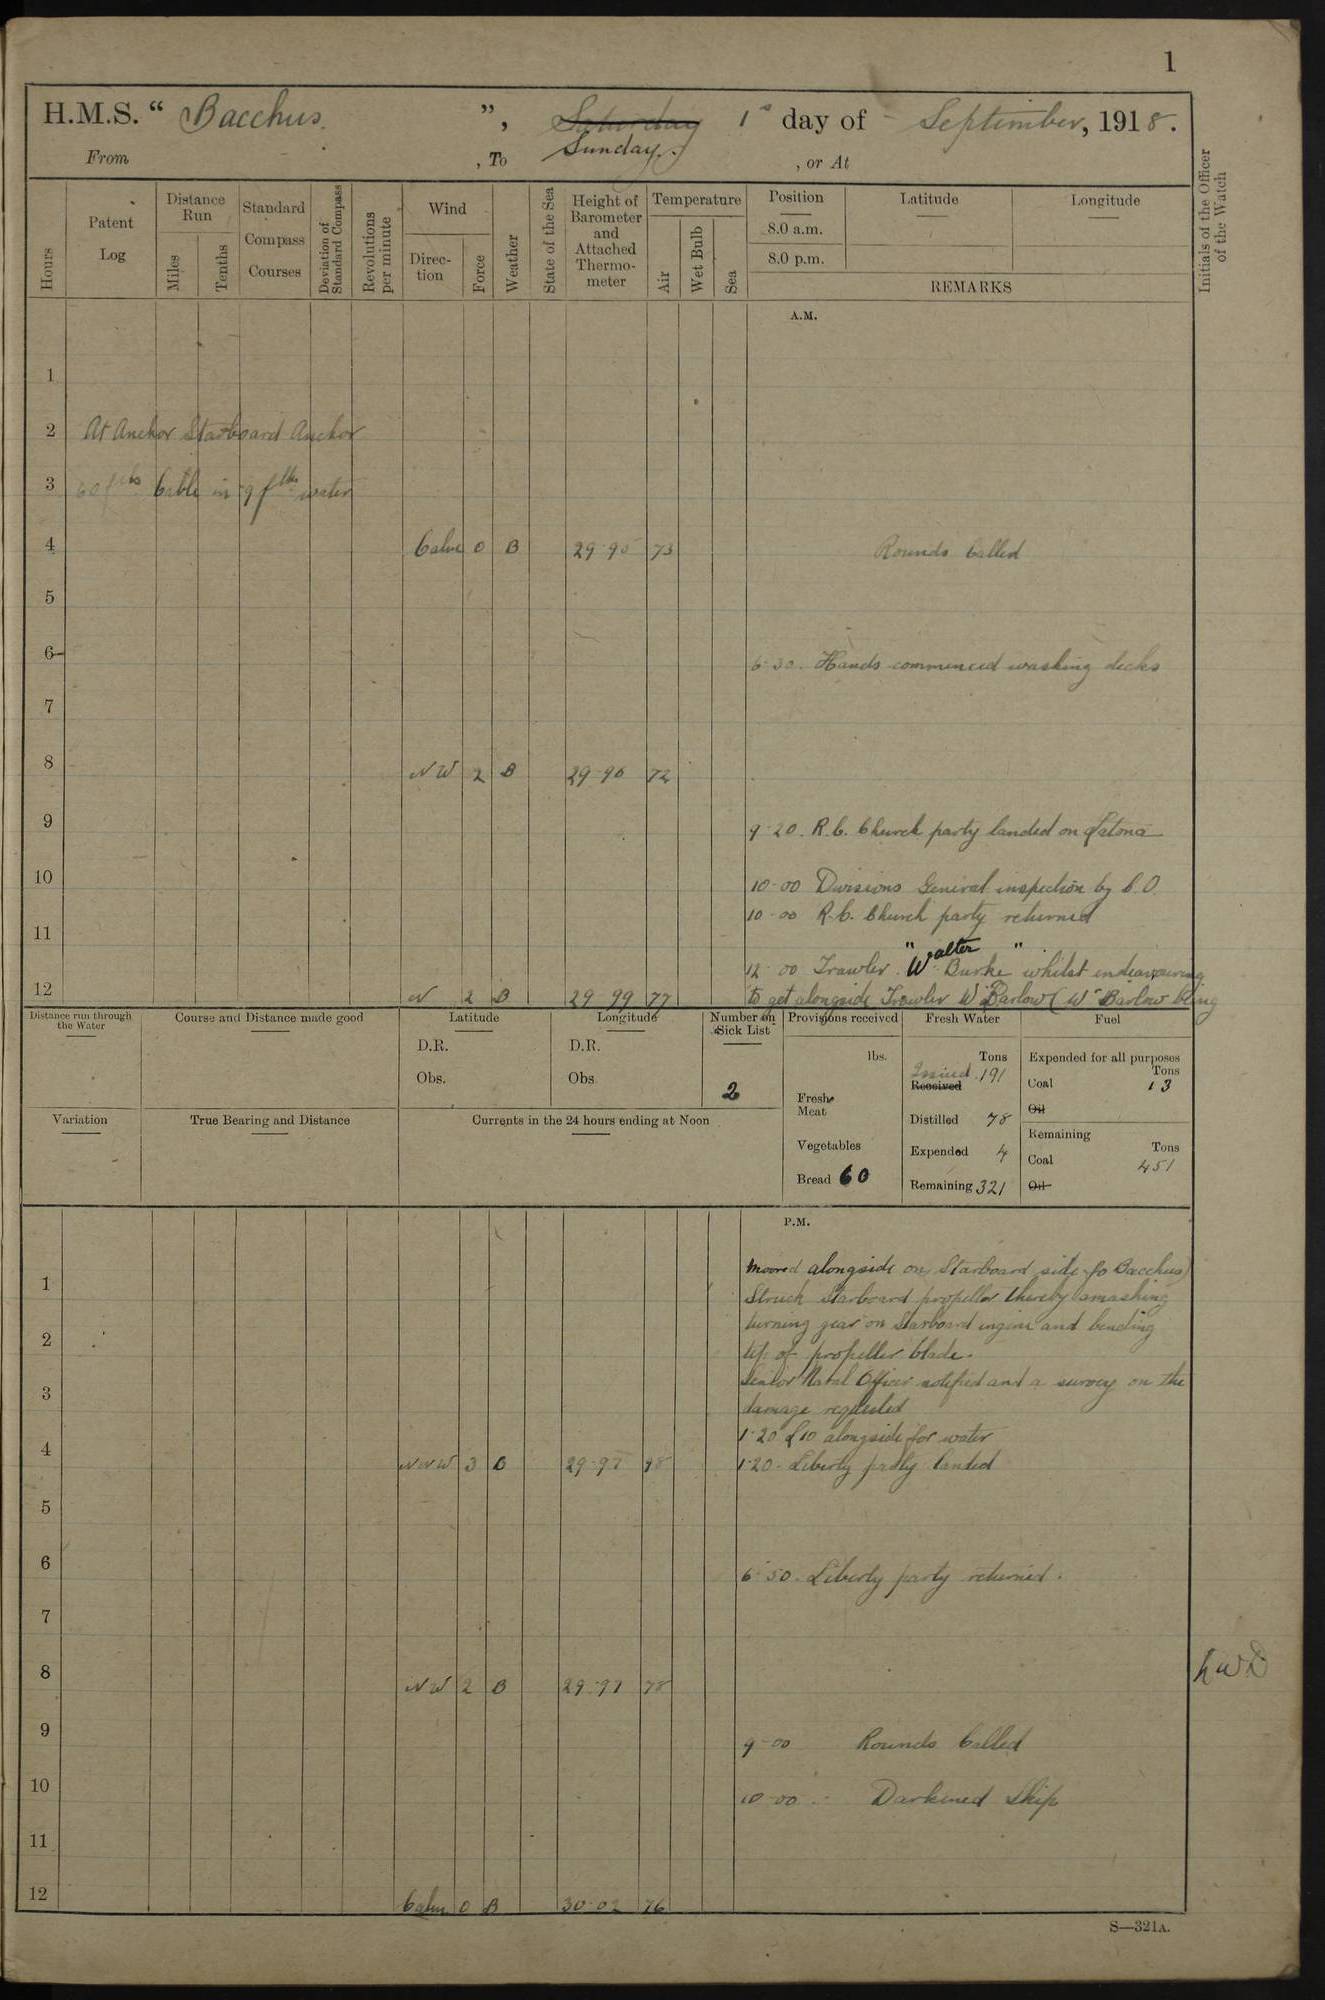 1
H.M.S. “ Bacchus ”, Saturday 1st day of September, 1918.
From , To Sunday , or At
Hours
Patent Log
Distance Run
Miles
Tenths
Standard Compass Courses
Deviation of Standard Compass
Revolutions per minute
Wind
Direc-tion
Force
Weather
State of the Sea
Height of Barometer and Attached Thermo-meter
Temperature
Air
Wet Bulb
Sea
Position
8.0 a.m.
8.0 p.m.
Latitude
Longitude
REMARKS
Initials of the Officer of the Watch
A.M.
1
2 At Anchor Starboard Anchor
3 60 fths Cable in 9 fths water
4 Calm 0 B 29·95 73 Rounds Called
5
6 6·30. Hands commenced washing decks
7
8 NW 2 B 29·96 72
9 9·20. R.C. Church party landed on Latona
10 10·00 Divisions General inspection by C.O.
10·00 R.C. Church party returned
11
12·00 Trawler "Walter Burke" whilst endeavouring
12 N 2 B 29·99 77 to get alongside Trawler W. Barlow (W. Barlow being
Distance run through the Water
Course and Distance made good
Latitude
D.R.
Obs.
Longitude
D.R.
Obs
Number on Sick List
2
Provisions received
lbs.
Fresh Meat
Vegetables
Bread 60
Fresh Water
Tons
Issued 191
Received
Distilled 78
Expended 4
Remaining 321
Fuel
Expended for all purposes
Tons
Coal 13
Oil
Remaining
Tons
Coal 451
Oil
Variation
True Bearing and Distance
Currents in the 24 hours ending at Noon
P.M.
moored alongside on Starboard side of Bacchus)
1 Struck Starboard propeller thereby smashing
turning gear on Starboard engine and bending
2 tip of propeller blade.
Senior Naval Officer notified and a survey on the
3 damage requested
1·20 L10 alongside for water
4 NNW 3 B 29·97 1·20. Liberty party landed
5
6 6·50. Liberty party returned.
7
8 NW 2 B 29·97 78
9 9·00 Rounds Called
10 10·00 Darkened Ship
11
12 Calm 0 B 30·02 76
S—321A.